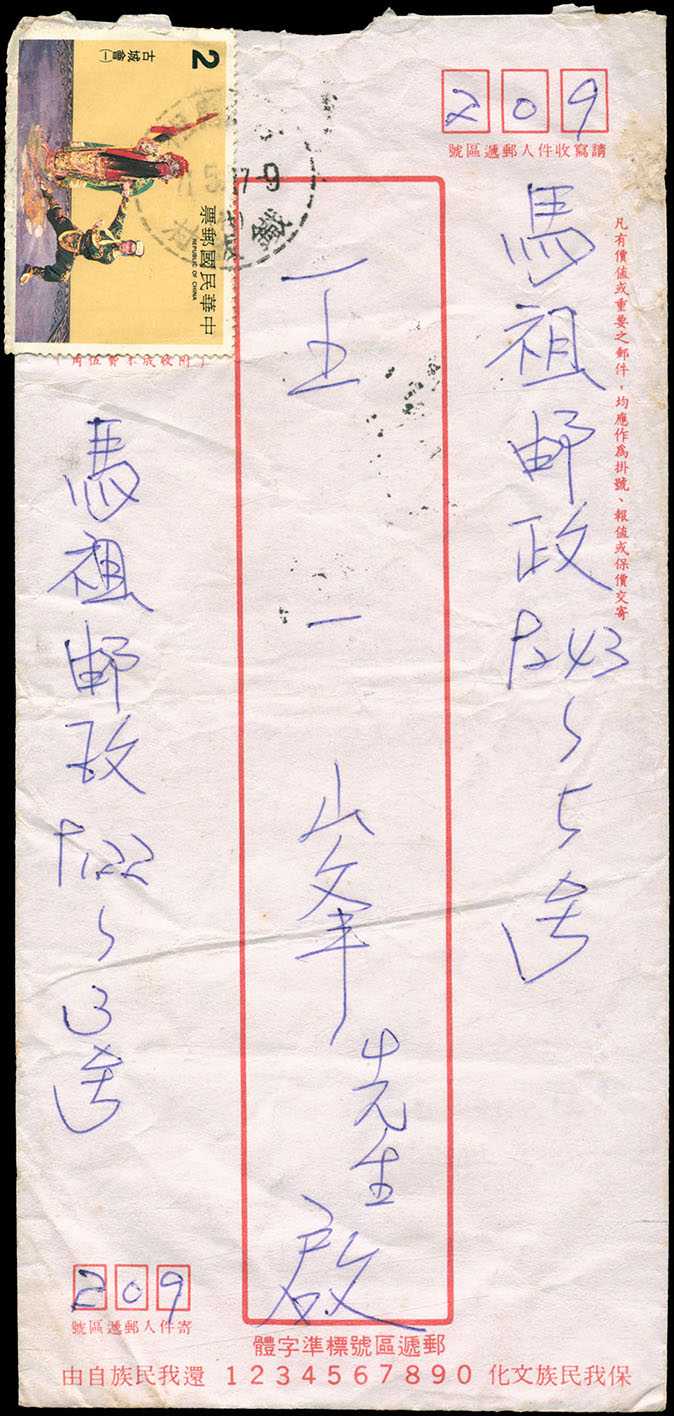 209
請寫收件人郵遞區號
凡有價值或重要之郵件，均應作為掛號、報值或保價交寄
馬祖邮政
43
5
王一峯先生啟
2
古城會(一)
中華民國郵票
REPUBLIC OF CHINA
馬祖邮政
122
3
209
寄件人郵遞區號
郵遞區號標準字體
保我民族文化 1234567890 還我民族自由